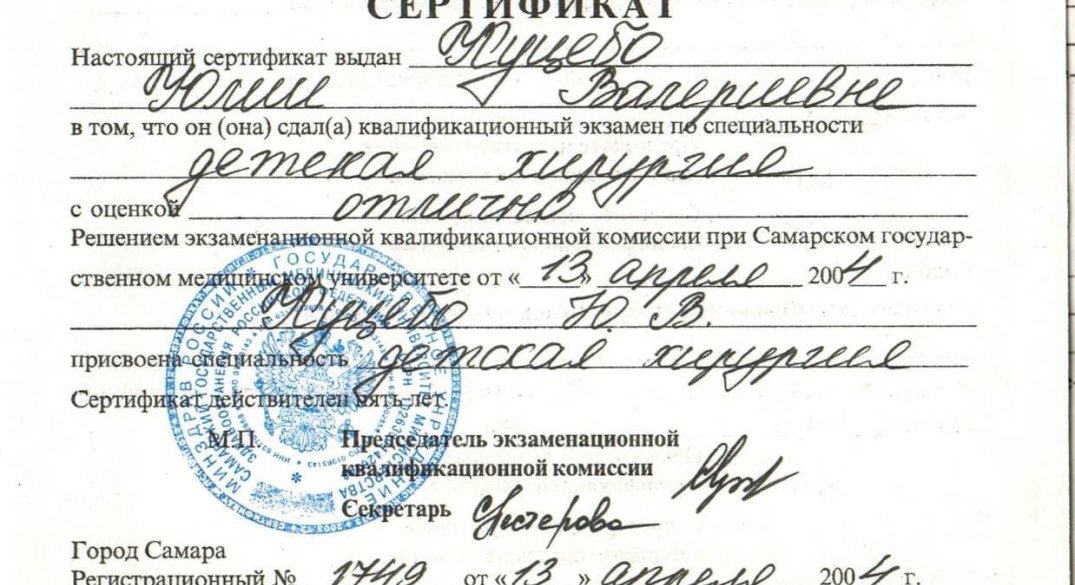 СЕРТИФИКАТ
Настоящий сертификат выдан Куцево
Юлии Валериевне
в том, что он (она) сдал(а) квалификационный экзамен по специальности
детская хирургия
с оценкой отлично
Решением экзаменационной квалификационной комиссии при Самарском государ-
ственном медицинском университете от «13» апреля 2004 г.
Куцево Ю. В.
присвоена специальность детская хирургия
Сертификат действителен пять лет.
М.П. Председатель экзаменационной
квалификационной комиссии
Секретарь Нестерова
Город Самара
Регистрационный № 1749 от «13» апреля 2004 г.